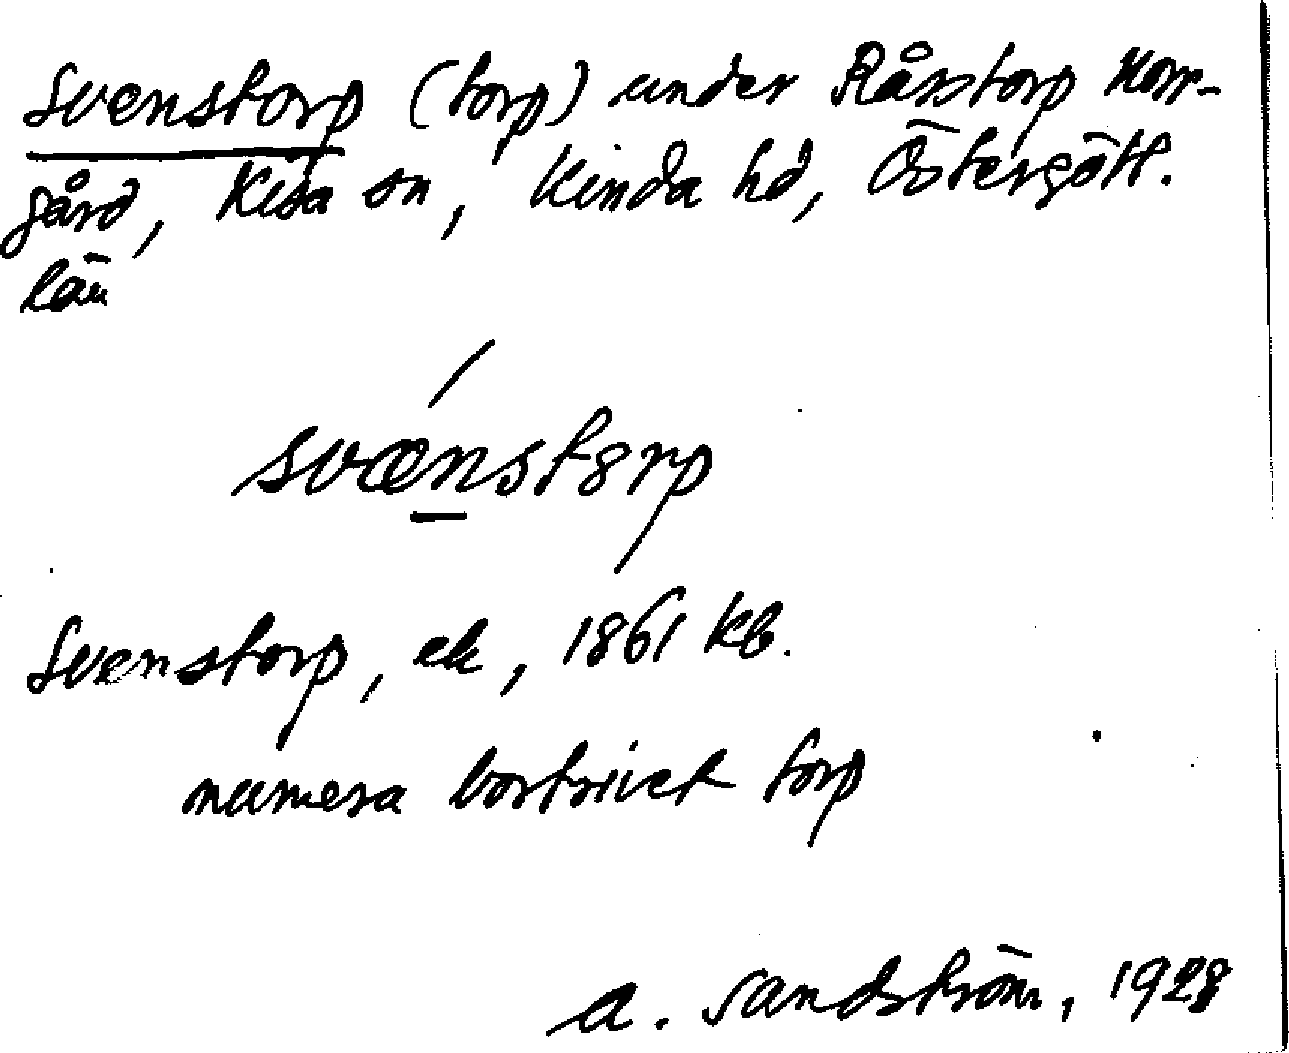 Svenstorp (torp) under Råstorp Norr-
gård, Kisa sn, Kinda hd, Östergötl.
län
svænstȣrp
Svenstorp, ek, 1861 kb.
numera bortrivet torp
A. Sandström, 1928